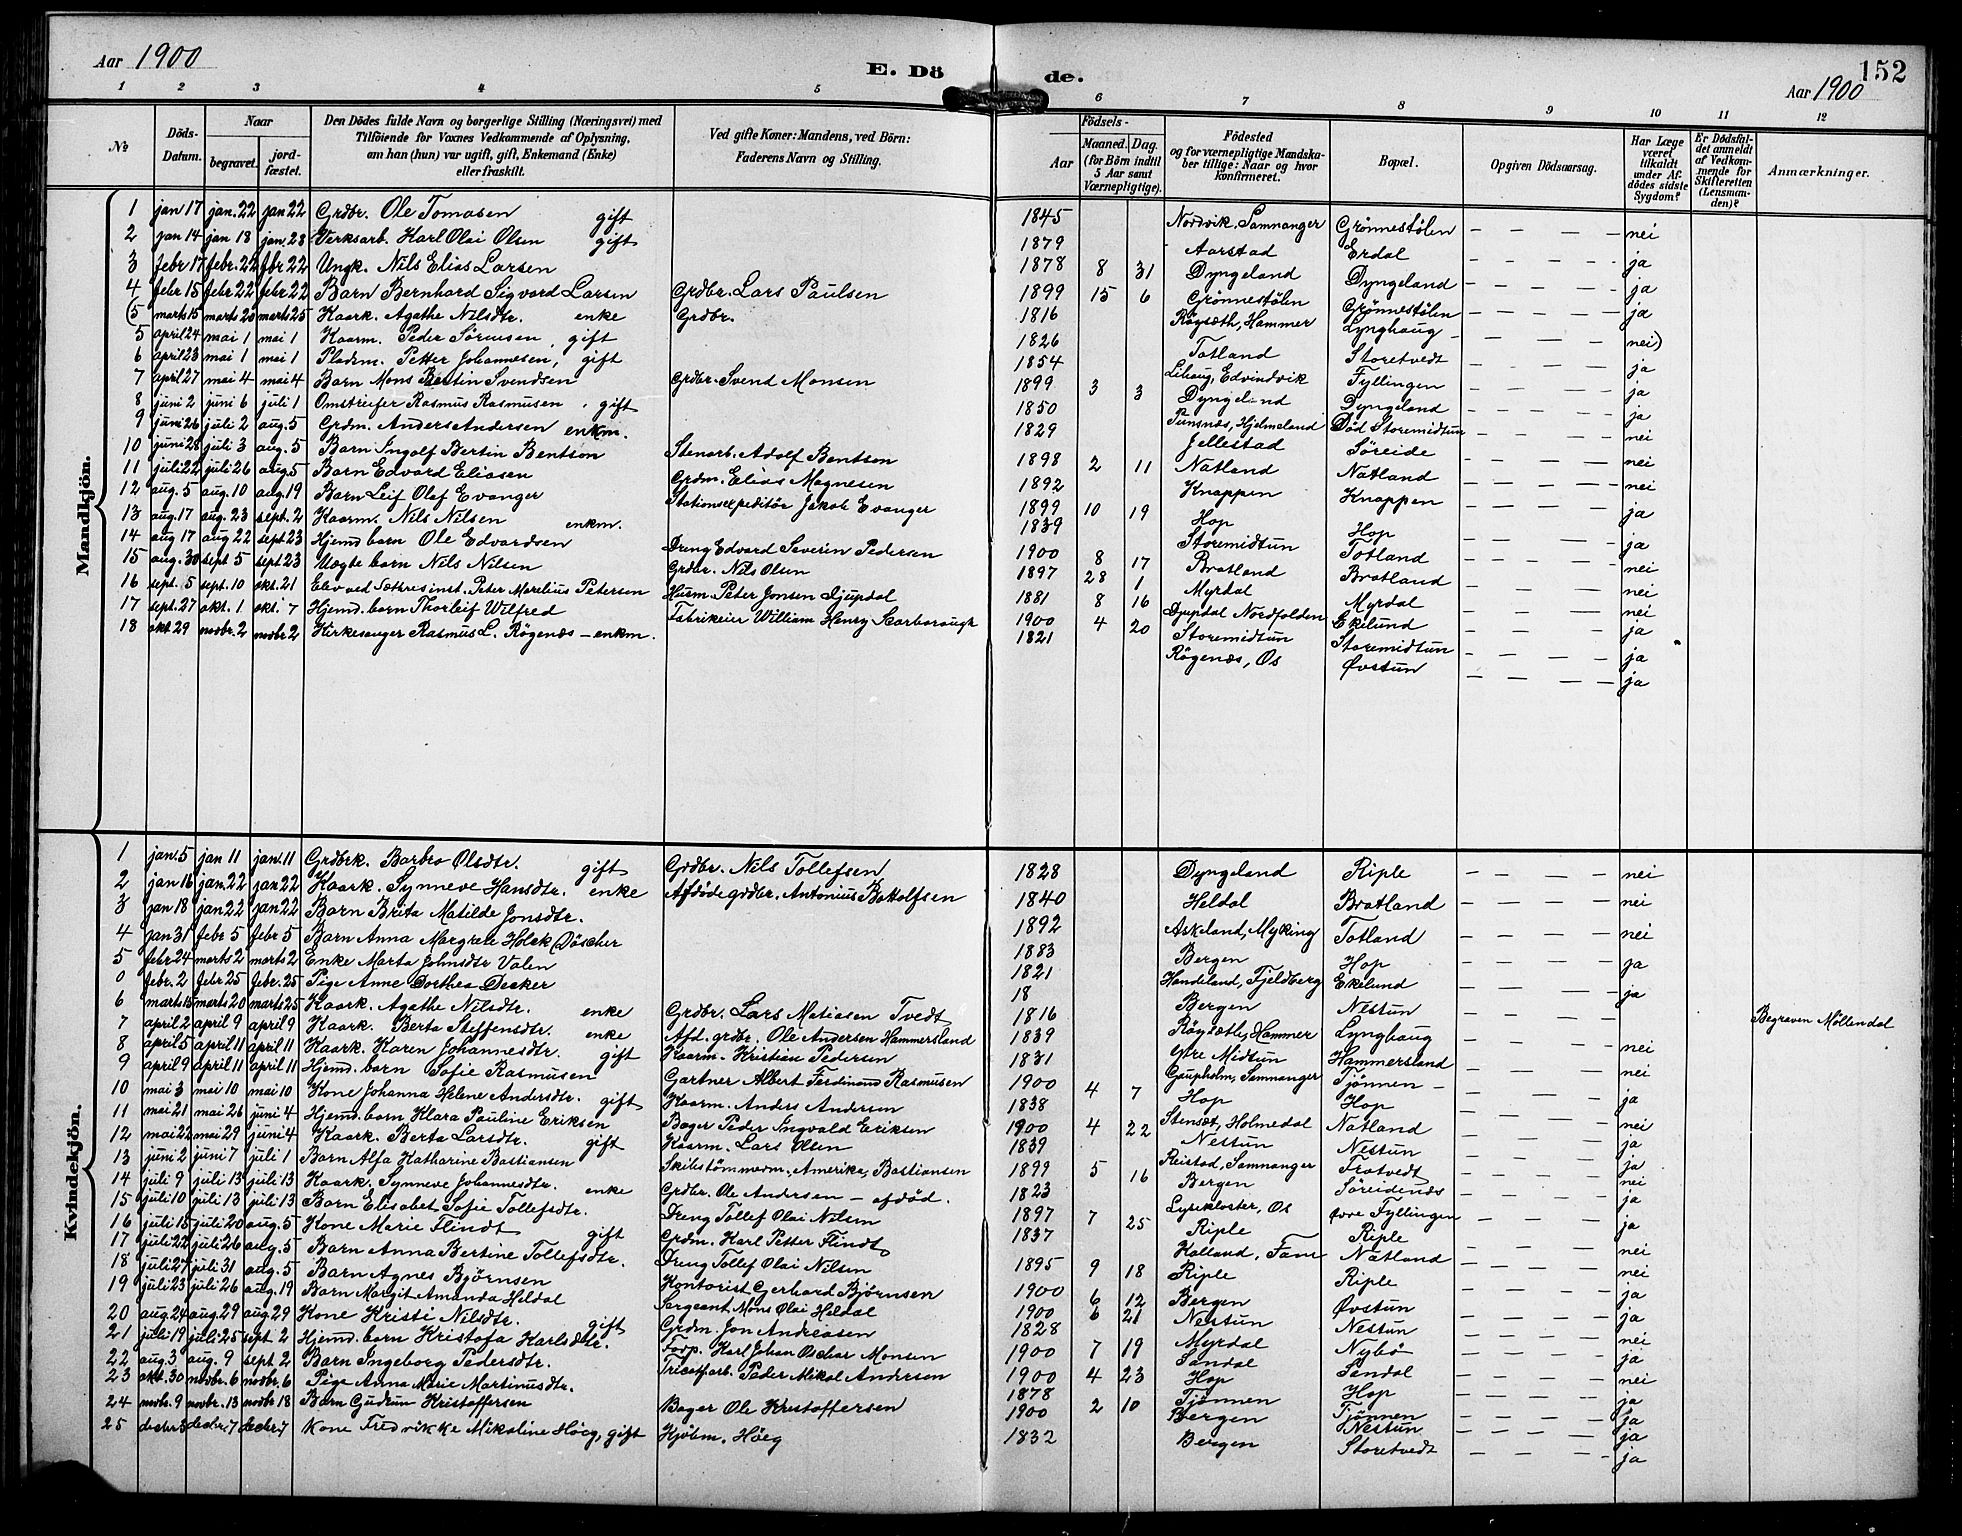 Aar 1900
E. Döde.
152
Aar 1900
1 2 3 4 5 6 7 8 9 10 11 12
№
Döds-Datum.
Naar
begravet.
jordfæstet.
Den Dödes fulde Navn og borgerlige Stilling (Næringsvei) med Tilföiende for Voxnes Vedkommende af Oplysning, om han (hun) var ugift, gift, Enkemand (Enke) eller fraskilt.
Ved gifte Koner: Mandens, ved Börn: Faderens Navn og Stilling.
Födsels-
Aar
Maaned. Dag.
(for Börn indtil 5 Aar samt Værnepligtige).
Födested og for værnepligtige Mandskaber tillige: Naar og hvor konfirmeret.
Bopæl.
Opgiven Dödsaarsag.
Har Læge været tilkaldt under Afdödes sidste Sygdom?
Er Dödsfaldet anmeldt af Vedkommende for Skifteretten (Lensmanden)?
Anmærkninger.
Mandkjön.
1 jan 17 jan. 22 jan 22 Grdbr. Ole Tomasen gift 1845 Nordvik, Samnanger Grönnestölen — — — — nei
2 jan 14 jan 18 jan. 28 Verksarb. Karl Olai Olsen gift 1879 Aarstad Erdal — — — — ja
3 febr 17 febr. 22 fbr 22 Ungk. Nils Elias Larsen 1878 8 31 Dyngeland Dyngeland — — — — ja
4 febr 15 febr 22 febr 22 Barn Bernhard Sigvard Larsen Grdbr. Lars Paulsen 1899 15 6 Grönnestölen Grönnestölen — — — — ja
(5 marts 15 marts 20 marts 25 Kaark. Agathe Nilsdtr. enke Grdbr. 1816 Röysæth, Hammer Lynghaug — — — — nei)
5 april 24 mai 1 mai 1 Kaarm. Peder Sörensen, gift 1826 Totland Storetvedt — — — — ja
6 april 23 mai 1 mai 1 Pladsm. Petter Johannesen, gift 1854 Lihaug, Edvindvik Fyllingen — — — — ja
7 april 27 mai 4 mai 4 Barn Mons Bertin Svendsen Grdbr. Svend Monsen 1899 3 3 Dyngeland Dyngeland — — — — ja
8 juni 2 juni 6 juli 1 Omstreifer Rasmus Rasmusen, gift 1850 Punsnes, Hjelmeland Död Storemidtun nei
9 juni 26 juli 2 aug. 5 Grdm. Anders Andersen enkm. 1829 Jellestad Söreide — — — — nei
10 juni 28 juli 3 aug. 5 Barn Ingolf Bertin Bentsen Stenarb. Adolf Bentsen 1898 2 11 Natland Natland — — — — nei
11 juli 22 juli 26 aug 5 Barn Edvard Eliasen Grdm. Elias Magnesen 1892 Knappen Knappen — — — — ja
12 aug. 5 aug. 10 aug. 19 Barn Leif Olaf Evanger Stationsexpeditör Jakob Evanger 1899 10 19 Hop Hop — — — — ja
13 aug. 17 aug. 23 sept. 2 Kaarm. Nils Nilsen enkm. 1839 Storemidtun Totland — — — — nei
14 aug 17 aug 22 sept 23 Hjemd. barn Ole Edvardsen Dreng Edvard Severin Pedersen 1900 8 17 Bratland Bratland — — — — nei
15 aug. 30 sept 5 sept 23 Uægte barn Nils Nilsen Grdbr. Nils Olsen 1897 28 1 Myrdal Myrdal — — — — nei
16 sept. 5 sept. 10 okt. 21 Elev ved Sætres inst. Peter Marelius Petersen Husm. Peter Jonsen Djupdal 1881 8 16 Djupdal Nordfolden Ekelund — — — — ja
17 sept. 27 okt. 1 okt. 7 Hjemd. barn Thorleif Wilfred Fabrikeier William Henry Scarborough 1900 4 20 Storemidtun Storemidtun — — — — ja
18 okt 29 novbr. 2 novbr 2 Kirkesanger Rasmus L. Rögenæs — enkm. 1821 Rögenæs, Os Övstun — — — — ja
Kvindekjön.
1 jan. 5 jan 11 jan. 11 Grdbrk. Barbro Olsdtr. gift Grdbr. Nils Tollefsen 1828 Dyngeland Riple — — — — nei
2 jan 16 jan. 22 jan 22 Kaark. Synneve Hansdtr. enke Afdöde grdbr. Antonius Bottolfsen 1840 Heldal Bratland — — — — nei
3 jan 18 jan 22 jan 22 Barn Brita Matilde Jonsdtr. 1892 Askeland, Myking Totland — — — — nei
4 jan 31 febr 5 febr 5 Barn Anna Margrete Holck Döscher 1883 Bergen Hop — — — — ja
5 febr 24 marts 2 marts 2 Enke Marta Johnsdtr Valen 1821 Handeland, Fjeldberg Ekelund — — — — ja
0 febr. 2 febr 25 febr. 25 Pige Anne Dorthea Decker 18 Bergen Nestun Begraven Möllendal
6 marts 15 marts 20 marts 25 Kaark. Agathe Nilsdtr. enke Grdbr. Lars Matiasen Tvedt 1816 Röysætb, Hammer Lynghaug — — — — nei
7 april 2 april 9 april 9 Kaark. Berta Steffensdtr. enke Afd. grdbr. Ole Andersen Hammersland 1839 Ytre Midtun Hammersland — — — — nei
8 april 5 april 11 april 11 Kaark. Karen Johannesdtr. gift Kaarm. Kristian Pedersen 1831 Gaupholm, Samnanger Tjönnen — — — — ja
9 april 9 april 11 april 11 Hjemd. barn Sofie Rasmusen Gartner Albert Ferdinand Rasmusen 1900 4 7 Hop Hop — — — — nei
10 mai 3 mai 10 mai 10 Kone Johanna Helene Andersdtr. gift Kaarm. Anders Andersen 1838 Stensæt, Holmedal Natland — — — — ja
11 mai 21 mai 26 juni 4 Hjemd. barn Klara Pauline Eriksen Bager Peder Ingvald Eriksen 1900 4 22 Nestun Nestun — — — — ja
12 mai 22 mai 29 juni 4 Kaark. Berta Larsdtr. gift Kaarm. Lars Olsen 1839 Reistad, Samnanger Tratvedt — — — — nei
13 juni 2 juni 7 juli 1 Barn Alfa Katharine Bastiansen Skibstömmerm., Amerika, Bastiansen 1899 5 16 Bergen Söreidenæs — — — — ja
14 juli 9 juli 13 juli 13 Kaark. Synneve Johannesdtr. enke Grdbr. Ole Andersen — afdöd. 1823 Lysekloster, Os Övre Fyllingen — — — — ja
15 juli 10 juli 13 juli 13 Barn Elisabet Sofie Tollefsdtr. Dreng Tollef Olai Nilsen 1897 7 25 Riple Riple — — — — nei
16 juli 15 juli 20 aug. 5 Kone Marie Flindt gift Grdm. Karl Petter Flindt 1837 Kalland, Fane Natland — — — — nei
17 juli 22 juli 26 aug. 5 Barn Anna Bertine Tollefsdtr. Dreng Tollef Olai Nilsen 1895 9 18 Riple Riple — — — — ja
18 juli 27 juli 31 aug. 5 Barn Agnes Bjørnsen Kontorist Gerhard Bjørnsen 1900 6 12 Bergen Øvstun — — — — ja
19 juli 23 juli 26 aug. 19 Barn Margit Amanda Heldal Sergeant Mons Olai Heldal 1900 6 21 Nestun Nestun — — — — nei
20 aug. 24 aug. 29 aug 29 Kone Kristi Nilsdtr. gift Grdm. Jon Andreasen 1828 Myrdal Nybö — — — — ja
21 juli 19 juli 25 sept. 2 Hjemd. barn Kristofa Karlsdtr. Forp. Karl Johan Oschar Monsen 1900 7 19 Sandal Sandal — — — — nei
22 aug. 3 aug. 9 sept. 2 Barn Ingeborg Pedersdtr. Tricotfarb. Peder Mikal Andersen 1900 4 23 Hop Hop — — — — ja
23 okt. 30 novbr. 6 novbr. 6 Pige Anna Marie Martinusdtr. 1878 Tjönnen Tjönnen — — — — ja
24 novbr. 9 novbr. 13 novbr 18 Barn Gudrun Kristoffersen Bager Ole Kristoffersen 1900 2 10 Bergen Nestun — — — — ja
25 decbr 3 decbr. 7 decbr. 7 Kone Fredrikke Mikaline Höeg, gift Kjöbm. Höeg 1832 Bergen Storetvedt — — — — ja